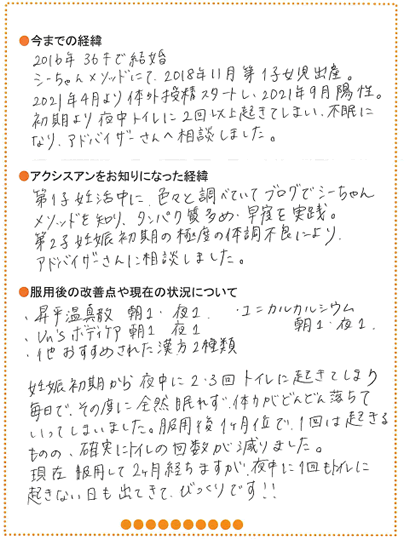 ●今までの経緯
2016年 36才で結婚
シーちゃんメソッドにて、2018年11月 第1子女児出産。
2021年4月より体外授精スタートし、2021年9月陽性。
初期より夜中トイレに2回以上起きてしまい、不眠に
なり、アドバイザーさんへ相談しました。
●アクシスアンをお知りになった経緯
第1子妊活中に、色々と調べていてブログでシーちゃん
メソッドを知り、タンパク質多め・早寝を実践。
第2子妊娠初期の極度の体調不良により、
アドバイザーさんに相談しました。
●服用後の改善点や現在の状況について
・昇平温真散 朝1・夜1 ・ユニカルカルシウム
・Un's ボディケア 朝1 夜1 朝1・夜1
・他 おすすめされた漢方2種類
妊娠初期から夜中に2・3回トイレに起きてしまり
毎日で、その度に全然眠れず、体力がどんどん落ちて
いってしまいました。服用後1ヶ月位で、1回は起きる
ものの、確実にトイレの回数が減りました。
現在、服用して2ヶ月経ちますが、夜中に1回もトイレに
起きない日も出てきて、びっくりです!!